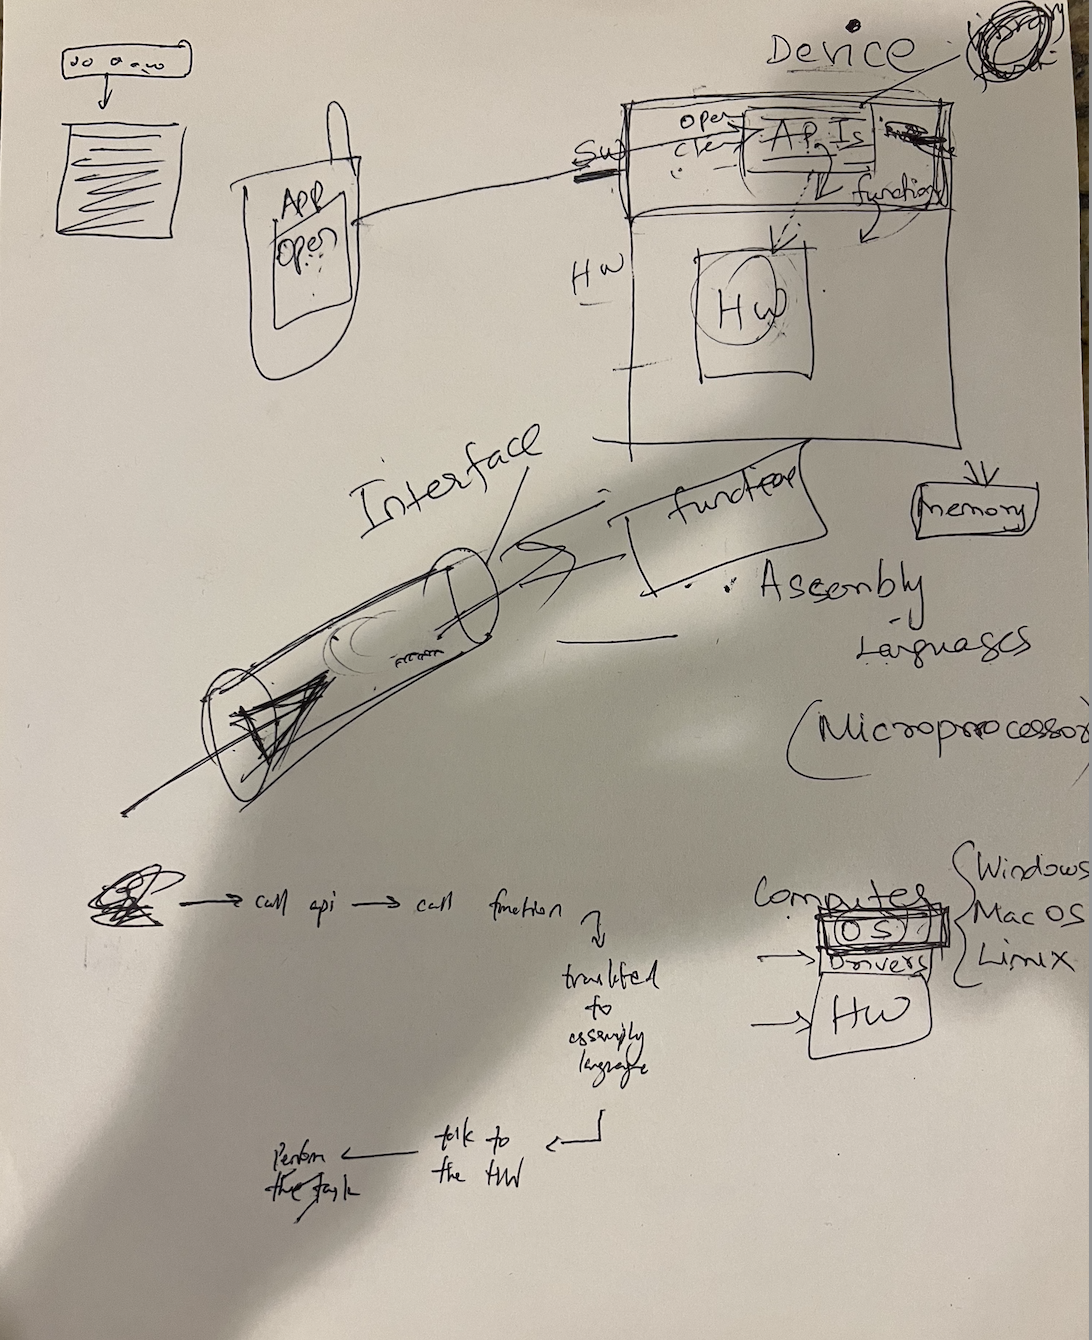 Device
APP
Open
SW
Open
APIs
function
HW
HW
Interface
function
memory
Assembly
Languages
(Microprocessor)
call api
call function
to
language
talk to
the HW
Perform
the task
Computer
OS
Drivers
HW
Windows
Mac OS
Linux